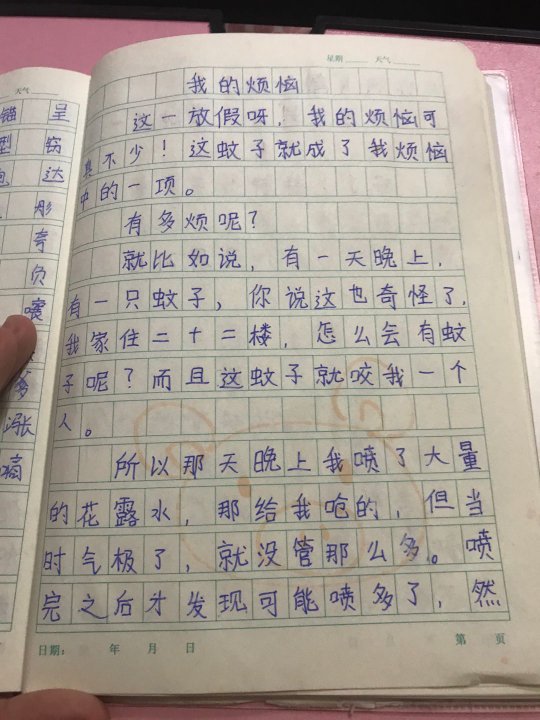 星期 天气
我的烦恼
这一放假呀，我的烦恼可
真不少！这蚊子就成了我烦恼
中的一项。
有多烦呢？
就比如说，有一天晚上，
有一只蚊子，你说这也奇怪了，
我家住二十二楼，怎么会有蚊
子呢？而且这蚊子就咬我一个
人。
所以那天晚上我喷了大量
的花露水，那给我呛的，但当
时气极了，就没管那么多。喷
完之后才发现可能喷多了，然
日期： 年 月 日
第 页
天气
锚 呈
型 锅
达
彤
夸
负
胀
嘀